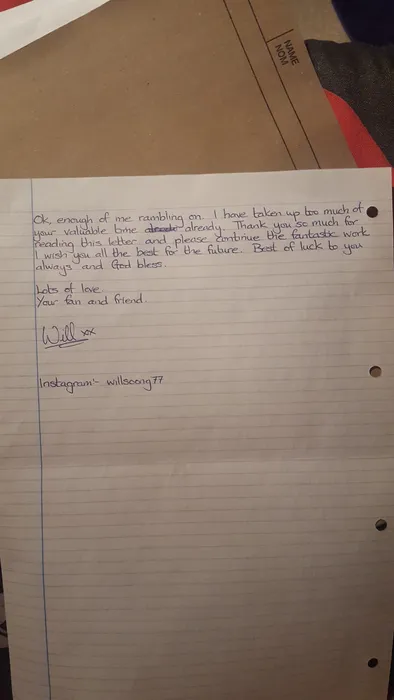 NAME
NOM
Ok, enough of me rambling on. I have taken up too much of
your valuable time already. Thank you so much for
reading this letter and please continue the fantastic work
I wish you all the best for the future. Best of luck to you
always and God bless.
Lots of love
Your fan and friend.
Will xx
Instagram:- willsoong77